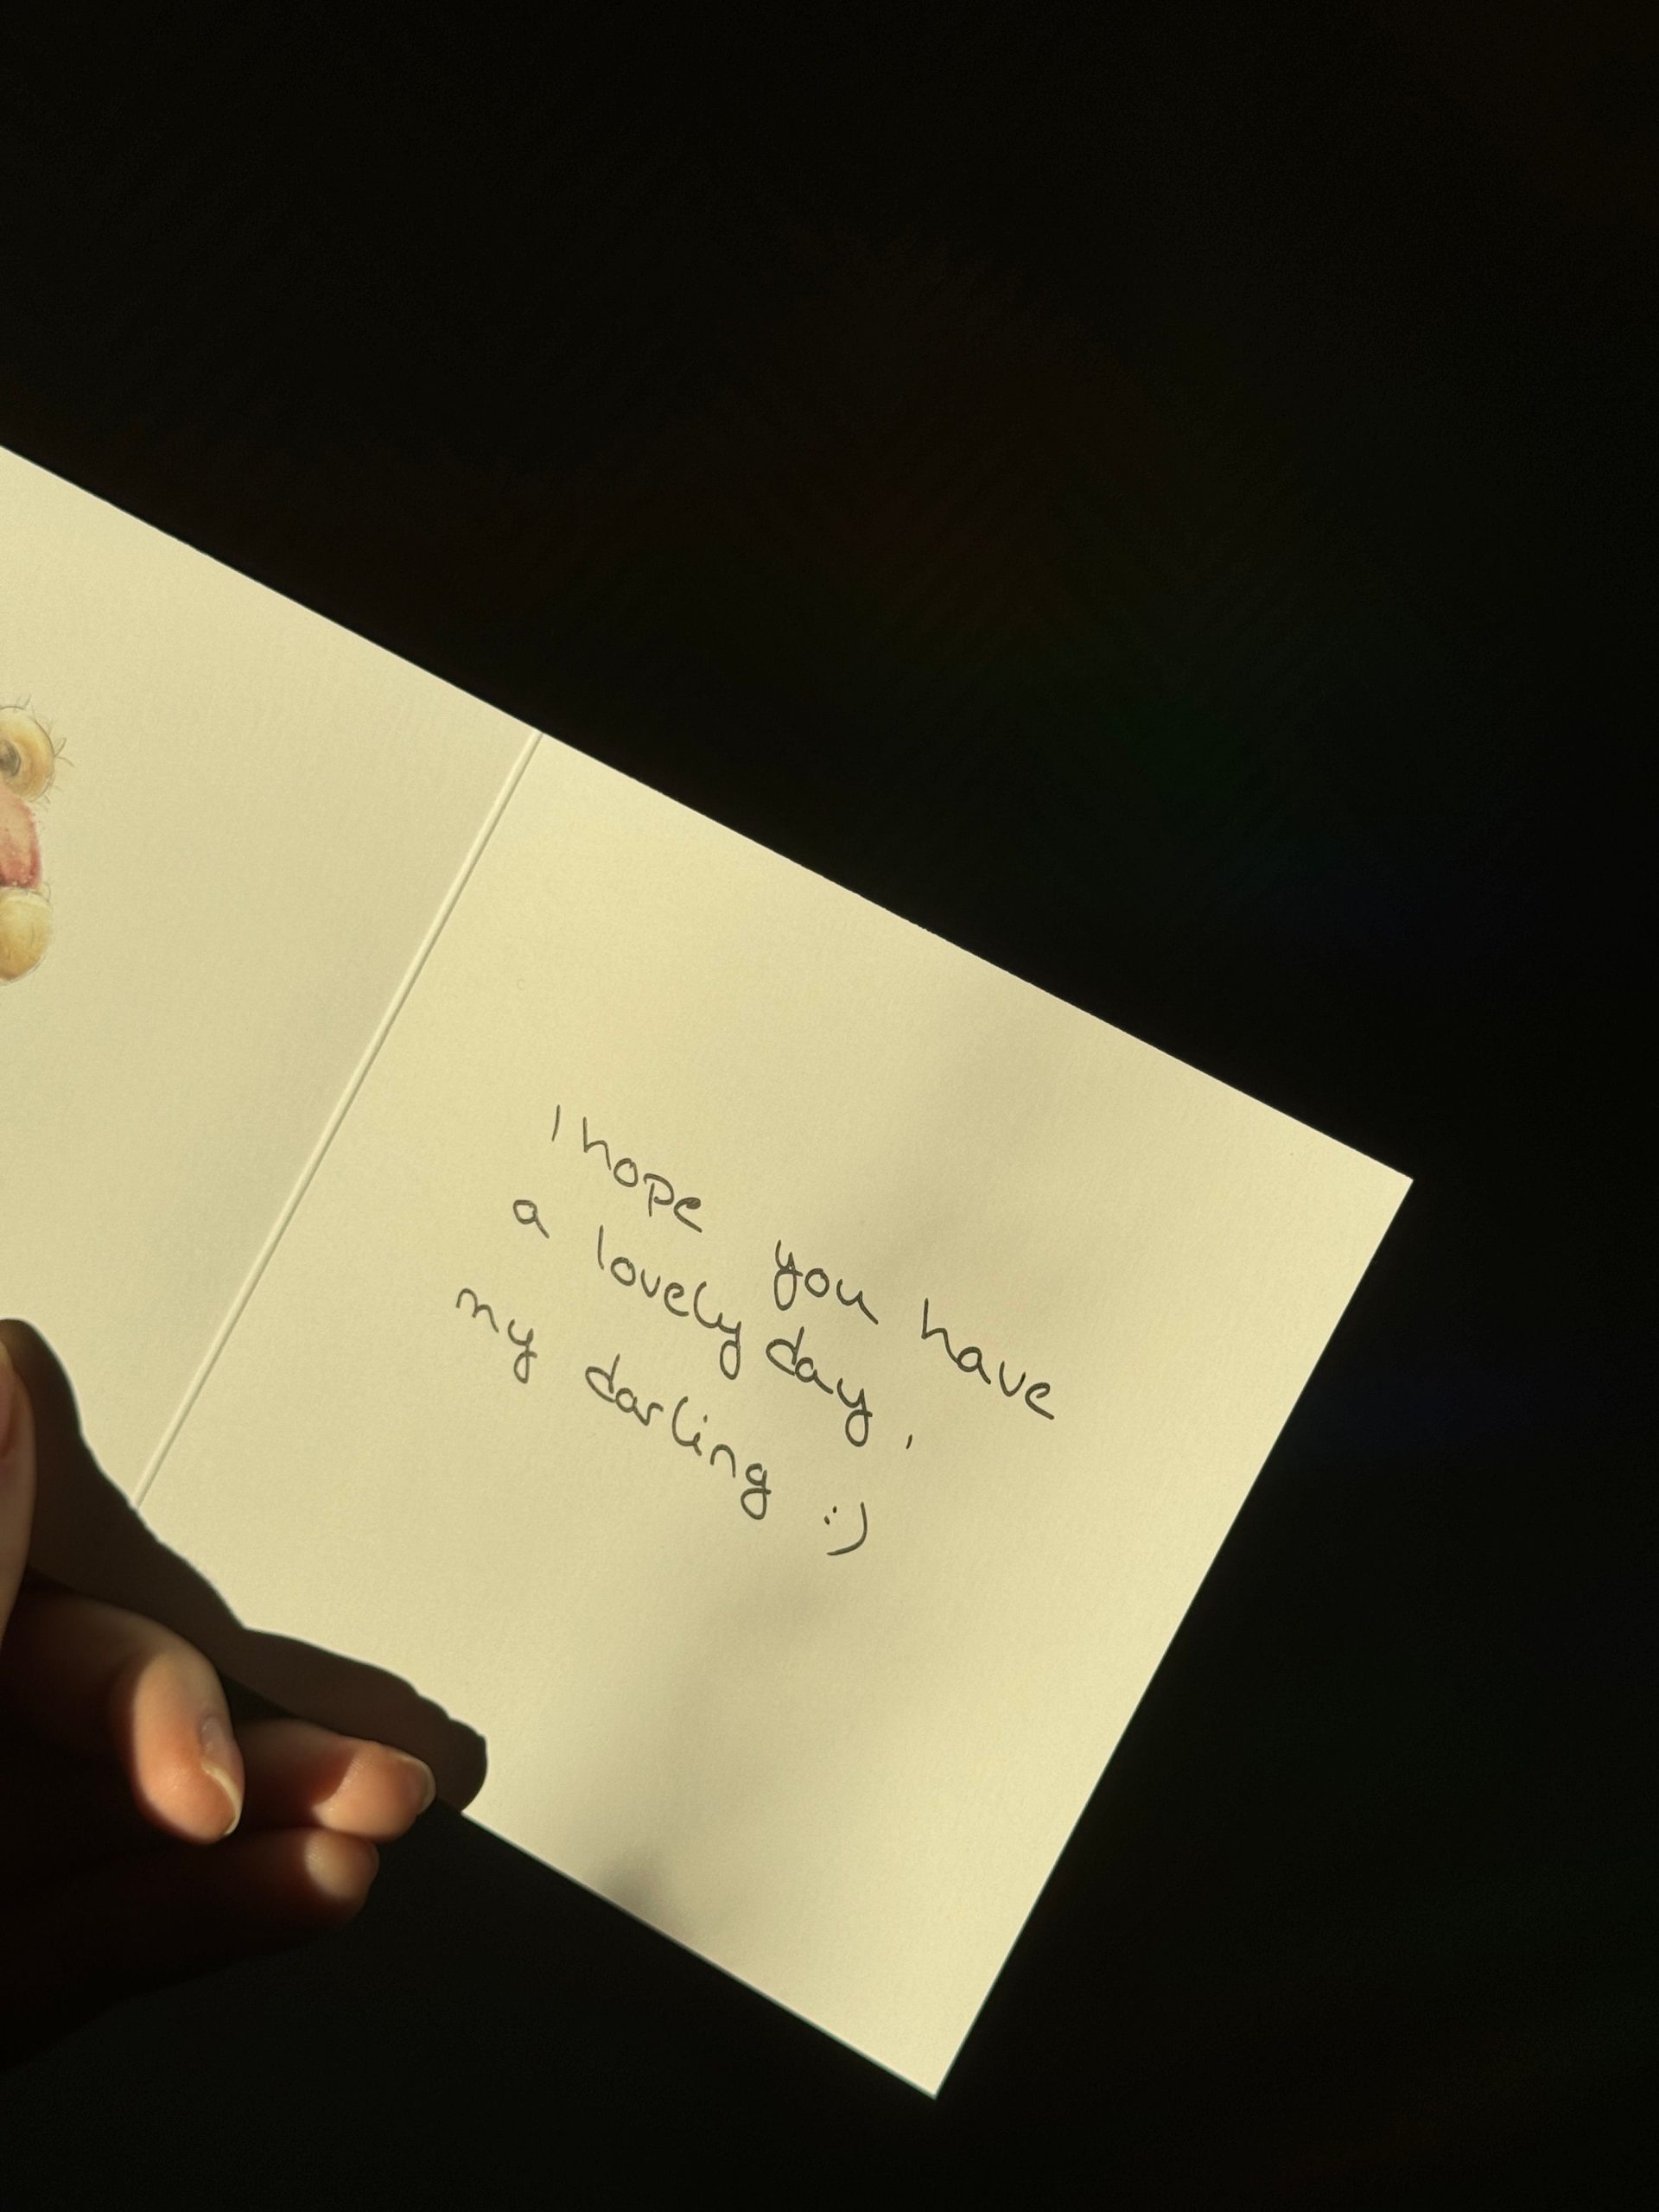 I hope you have
a lovely day,
my darling :)